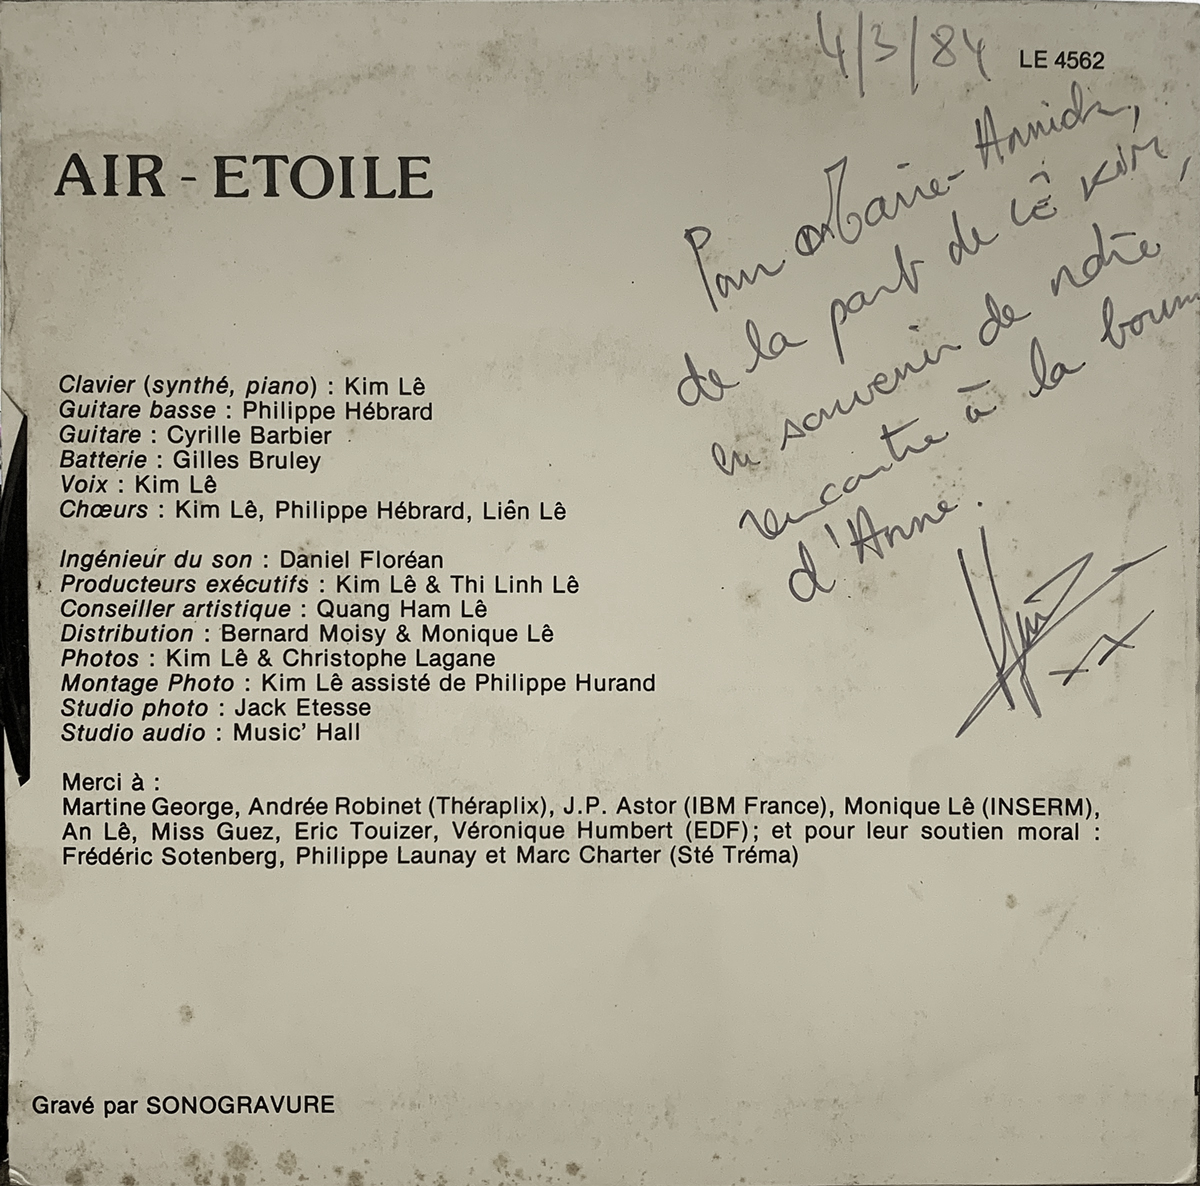 4/3/84
LE 4562
AIR - ETOILE
Pour Marie-Annick,
de la part de Lê Kim,
en souvenir de notre
rencontre à la boum
d'Anne.
Clavier (synthé, piano) : Kim Lê
Guitare basse : Philippe Hébrard
Guitare : Cyrille Barbier
Batterie : Gilles Bruley
Voix : Kim Lê
Chœurs : Kim Lê, Philippe Hébrard, Liên Lê
Ingénieur du son : Daniel Floréan
Producteurs exécutifs : Kim Lê & Thi Linh Lê
Conseiller artistique : Quang Ham Lê
Distribution : Bernard Moisy & Monique Lê
Photos : Kim Lê & Christophe Lagane
Montage Photo : Kim Lê assisté de Philippe Hurand
Studio photo : Jack Etesse
Studio audio : Music' Hall
Merci à :
Martine George, Andrée Robinet (Théraplix), J.P. Astor (IBM France), Monique Lê (INSERM),
An Lê, Miss Guez, Eric Touizer, Véronique Humbert (EDF); et pour leur soutien moral :
Frédéric Sotenberg, Philippe Launay et Marc Charter (Sté Tréma)
Gravé par SONOGRAVURE